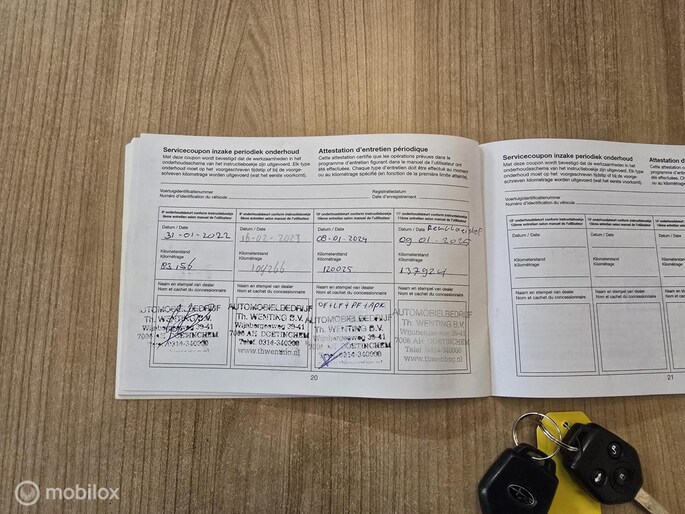 Servicecoupon inzake periodiek onderhoud
Met deze coupon wordt bevestigd dat de werkzaamheden in het
onderhoudsschema van het instructieboekje zijn uitgevoerd. Elk type
onderhoud moet op het voorgeschreven tijdstip of bij de voorge-
schreven kilometrage worden uitgevoerd (wat het eerste voorkomt).
Attestation d'entretien périodique
Cette attestation certifie que les opérations prévues dans le
programme d'entretien figurant dans le manuel de l'utilisateur ont
été effectuées. Chaque type d'entretien doit être effectué au moment
ou au kilométrage spécifié (en fonction de la première limite atteinte).
Voertuigidentificatienummer
Numéro d'identification du véhicule
Registratiedatum
Date d'enregistrement
Datum / Date
31-01-2022
Kilometerstand
Kilométrage
Naam en stempel van dealer
Nom et cachet du concessionnaire
AUTOMOBIELBEDRIJF
Th. WENTING B.V.
Datum / Date
16-02-2023
Kilometerstand
Kilométrage
104266
Naam en stempel van dealer
Nom et cachet du concessionnaire
AUTOMOBIELBEDRIJF
Th. WENTING B.V.
Wijnbergseweg 39-41
7006 AH DOETINCHEM
Telef. 0314-340000
www.thwenting.nl
Datum / Date
08-01-2024
Kilometerstand
Kilométrage
120025
Naam en stempel van dealer
Nom et cachet du concessionnaire
OF+LF+PF+APK
AUTOMOBIELBEDRIJF
Th. WENTING B.V.
Wijnbergseweg 39-41
7006 AH DOETINCHEM
Telef. 0314-340000
www.thwenting.nl
Datum / Date
09-01-2025
Kilometerstand
Kilométrage
137924
Naam en stempel van dealer
Nom et cachet du concessionnaire
AUTOMOBIELBEDRIJF
Th. WENTING B.V.
Wijnbergseweg 39-41
7006 AH DOETINCHEM
Telef. 0314-340000
www.thwenting.nl
20
Servicecoupon inzake periodiek onderhoud
Met deze coupon wordt bevestigd dat de werkzaamheden in het
onderhoudsschema van het instructieboekje zijn uitgevoerd. Elk type
onderhoud moet op het voorgeschreven tijdstip of bij de voorge-
schreven kilometrage worden uitgevoerd (wat het eerste voorkomt).
Voertuigidentificatienummer
Numéro d'identification du véhicule
Datum / Date
Kilometerstand
Kilométrage
Naam en stempel van dealer
Nom et cachet du concessionnaire
Datum / Date
Kilometerstand
Kilométrage
Naam en stempel van dealer
Nom et cachet du concessionnaire
Datum / Date
Kilometerstand
Kilométrage
Naam en stempel van dealer
Nom et cachet du concessionnaire
21
mobilox